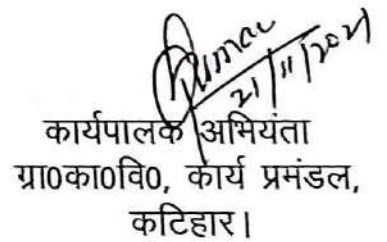 Kumar
21/11/2021
कार्यपालक अभियंता
ग्रा0का0वि0, कार्य प्रमंडल,
कटिहार।